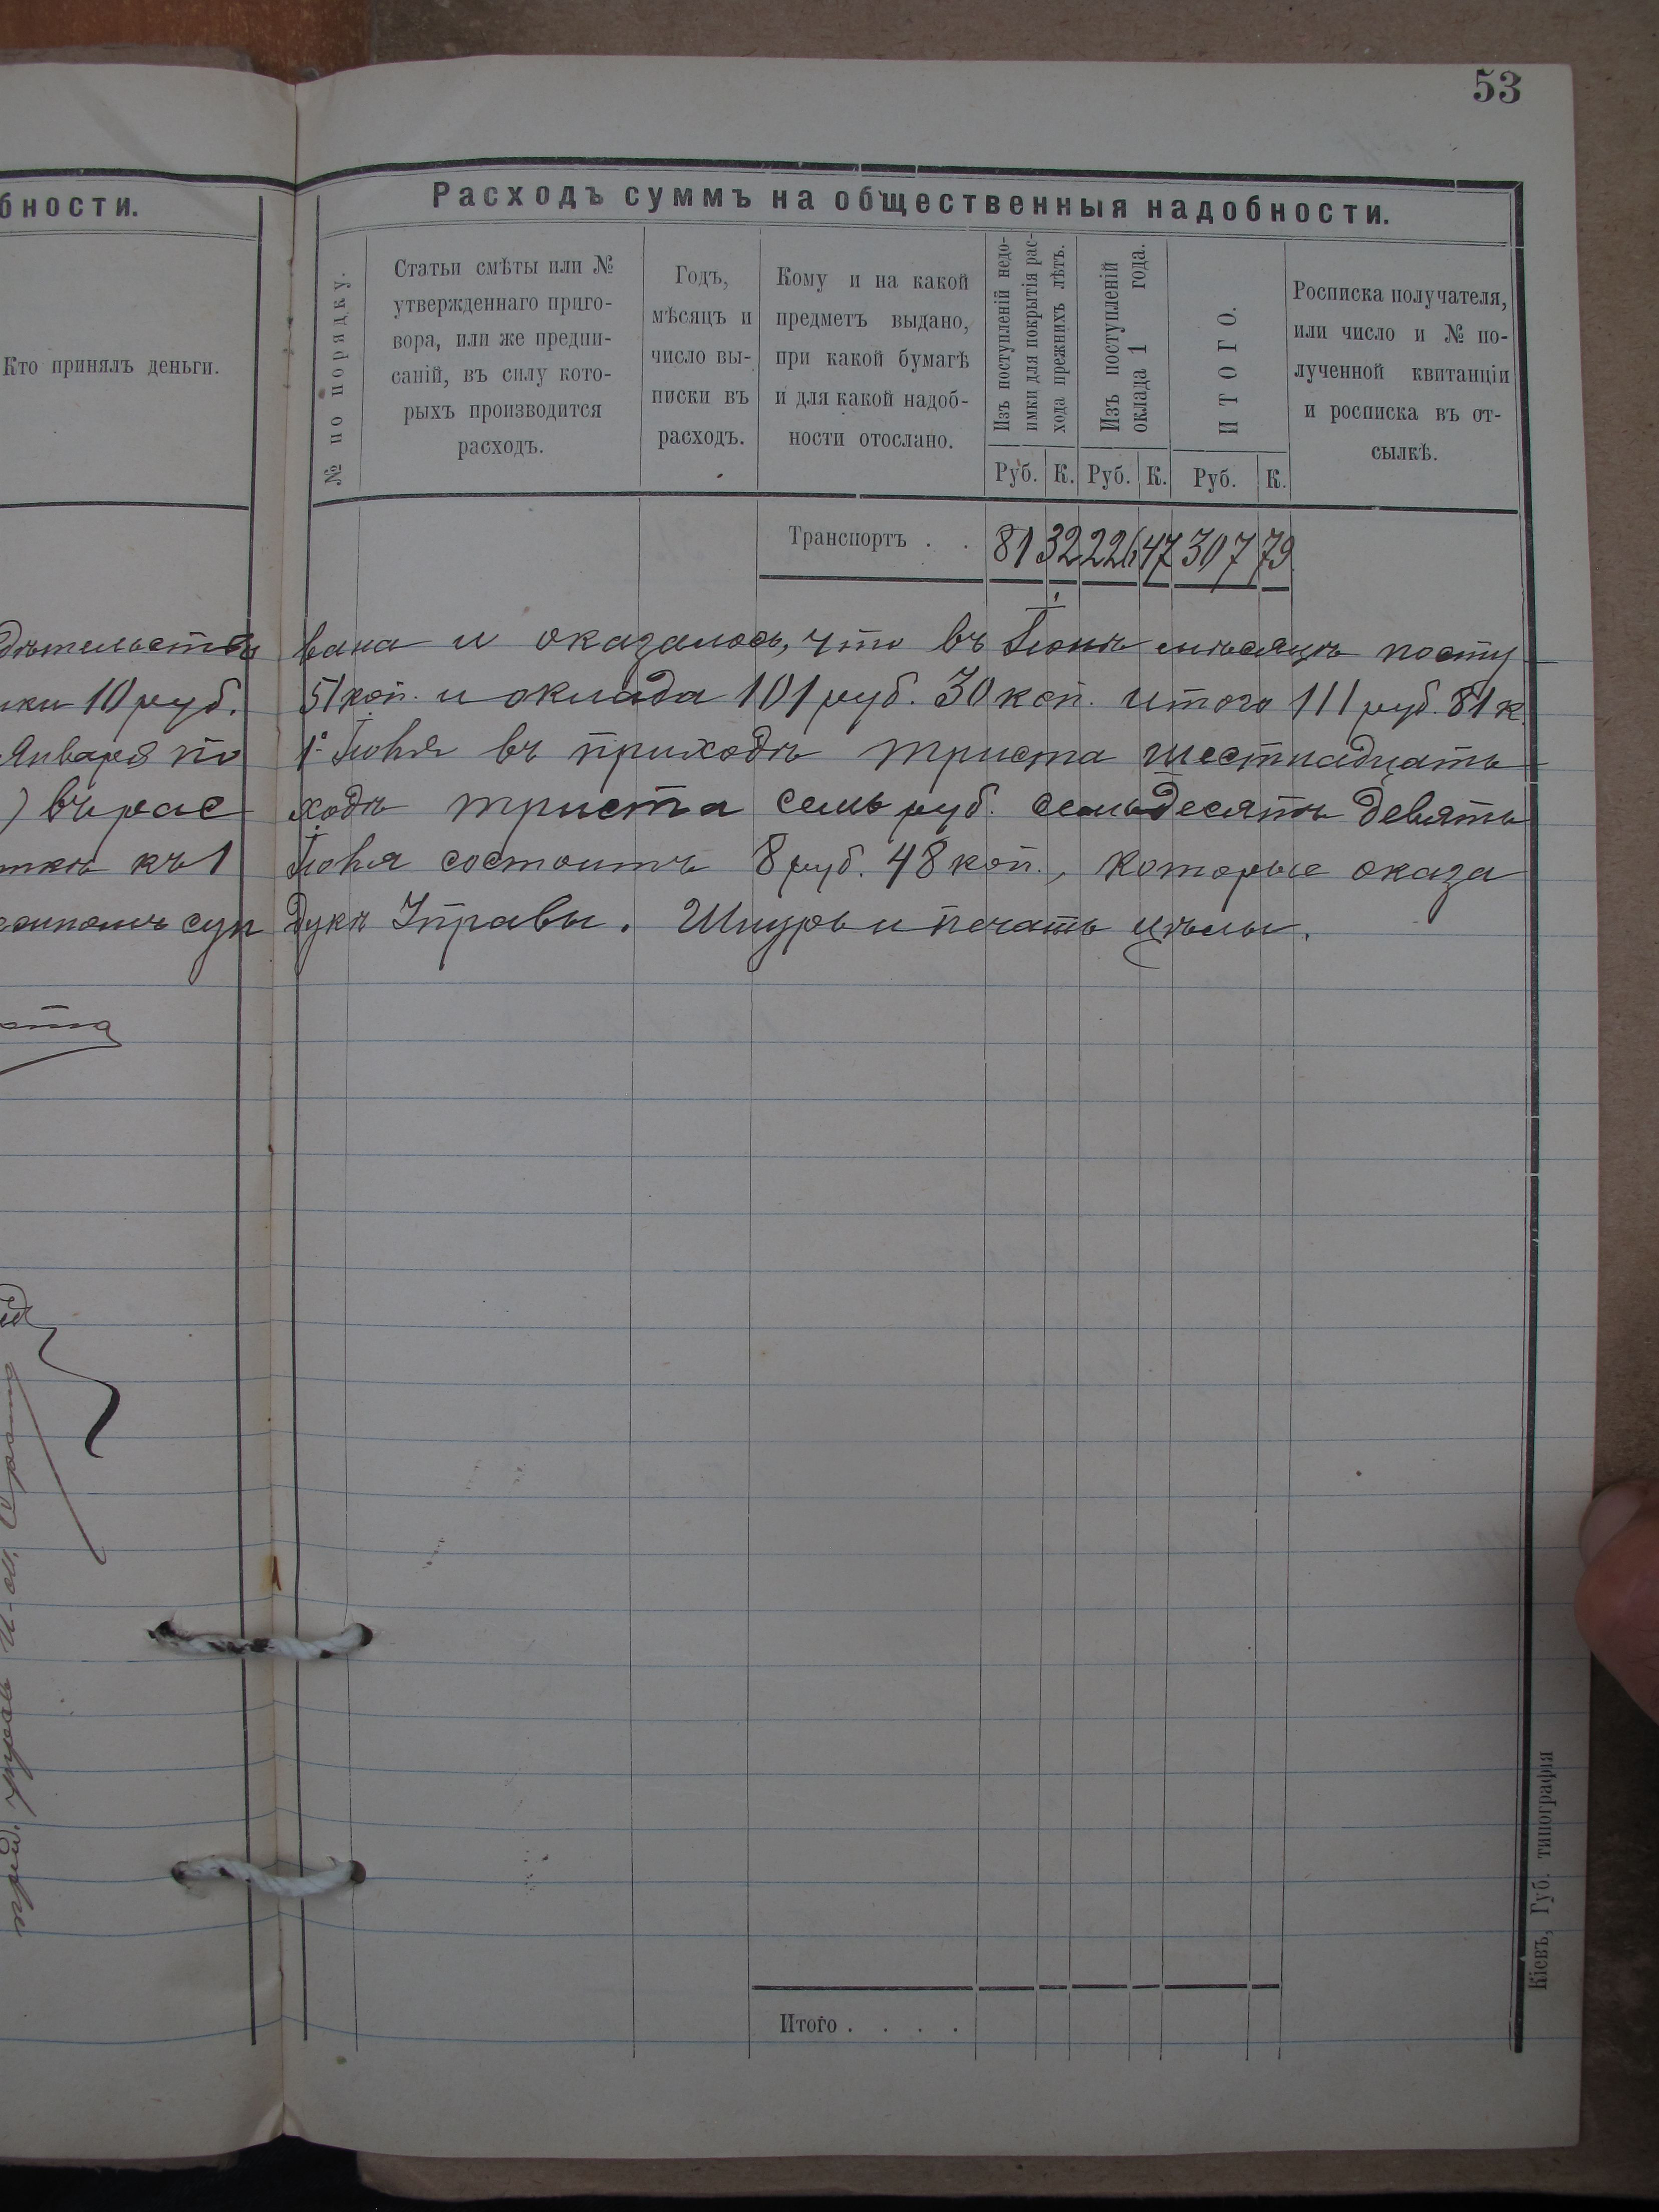 53
бности.
Кто принялъ деньги.
Расходъ суммъ на общественныя надобности.
№ по порядку.
Статьи смѣты или №
утвержденнаго приго-
вора, или же предпи-
саній, въ силу кото-
рыхъ производится
расходъ.
Годъ,
мѣсяцъ и
число вы-
писки въ
расходъ.
Кому и на какой
предметъ выдано,
при какой бумагѣ
и для какой надоб-
ности отослано.
Изъ поступленій недо-
имки для покрытія рас-
хода прежнихъ лѣтъ.
Изъ поступленій
оклада 1 года.
ИТОГО.
Росписка получателя,
или число и № по-
лученной квитанціи
и росписка въ от-
сылкѣ.
Руб. К. Руб. К. Руб. К.
Транспортъ . . 81 32 226 47 307 79
вана и оказалось, что въ Іюнѣ мѣсяцѣ посту
10 руб. 51 коп. и оклада 101 руб. 30 коп. итого 111 руб. 81 к.
Января по 1е Іюля въ приходѣ триста шестнадцать
) въ рас ходѣ триста семь руб. семьдесять девять
къ 1 Іюля состоитъ 8 руб. 48 коп., которые оказа
сун дукѣ Управы. Шнуръ и печать цѣлы.
Итого . . . .
Кіевъ, Губ. типографія